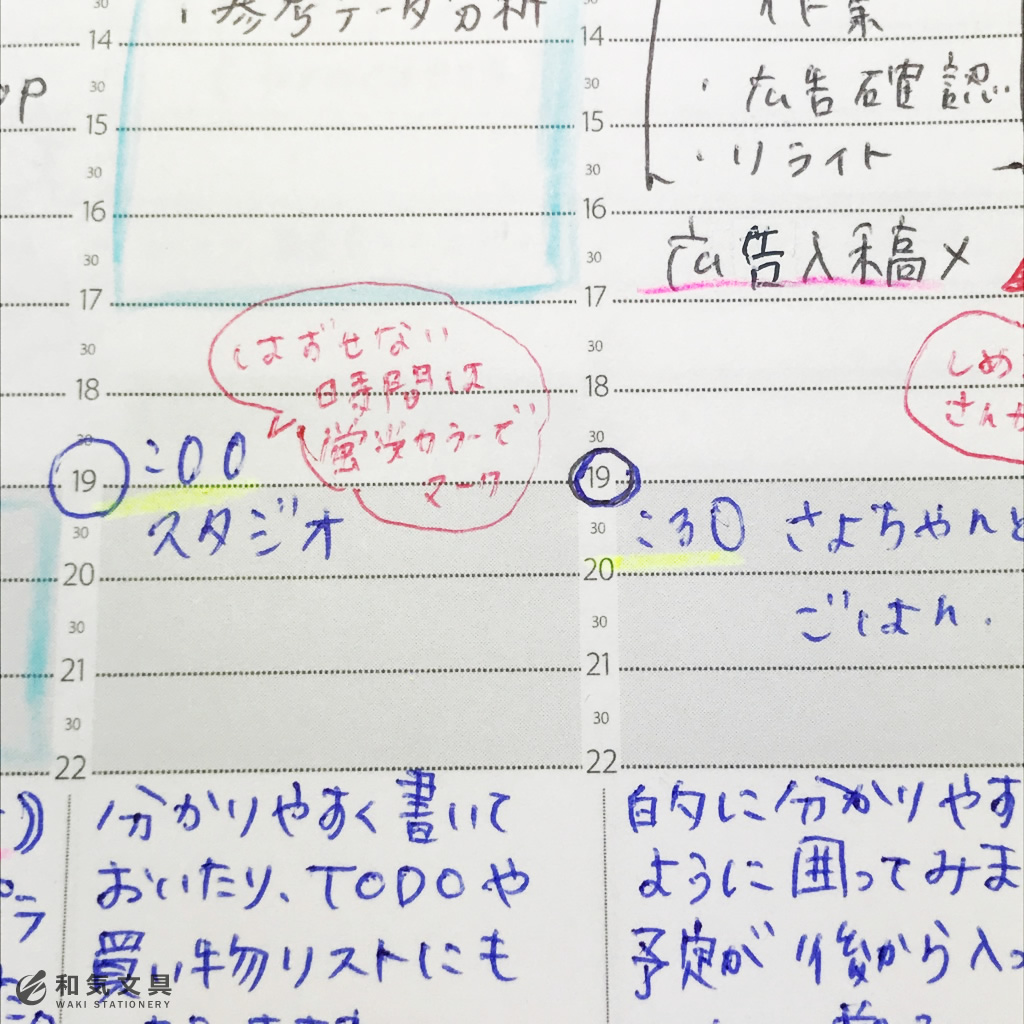 ・参考データ分析
14
30
15
30
16
30
17
30
18
30
19
30
20
30
21
30
22
はずせない
時間は
蛍光カラーで
マーク
:00
スタジオ
分かりやすく書いて
おいたり、TODOや
買い物リストにも
30
14
30
15
30
16
30
17
30
18
30
19
30
20
30
21
30
22
・広告確認
・リライト
広告入稿〆
しめ
さんか
:30 さよちゃんと
ごはん.
的に分かりやす
ように囲ってみま
予定が後から入っ
和気文具
WAKI STATIONERY